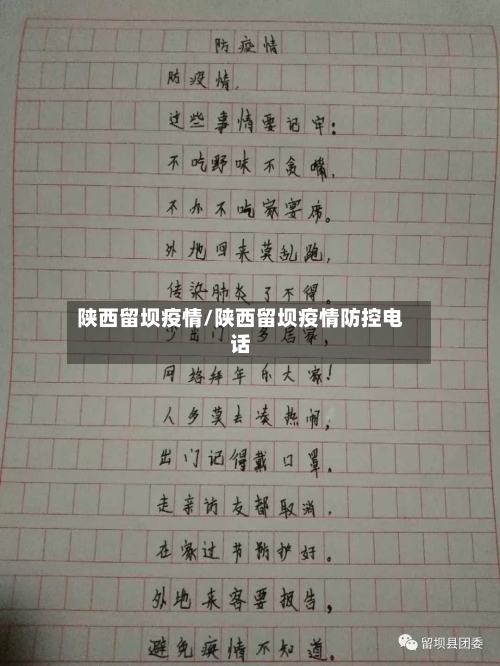 防疫情
防疫情,
这些事情要记牢:
不吃野味不贪嘴,
不办不吃家宴席。
外地回来莫乱跑,
传染肺炎了不得。
陕西留坝疫情/陕西留坝疫情防控电
话
少出门 多居家,
网络拜年乐大家!
人多莫去凑热闹,
出门记得戴口罩。
走亲访友都取消,
在家过节防护好。
外地来客要报告,
避免疫情不知道。
留坝县团委